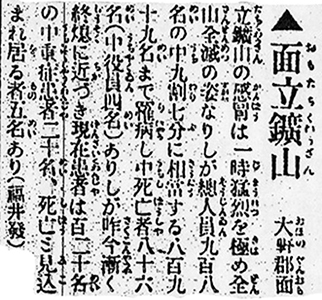 ▲面立鑛山 大野郡面
立鑛山の感冒は一時猛烈を極め全
山全滅の姿なりしが總人員九百八
名の中九割七分に相當する八百九
十九名まで罹病し中死亡者八十六
名(中役員四名)ありしが昨今漸く
終熄に近づき現在患者は百二十名
の中重症患者二十名、死亡と見込
まれ居る者五名あり(福井發)